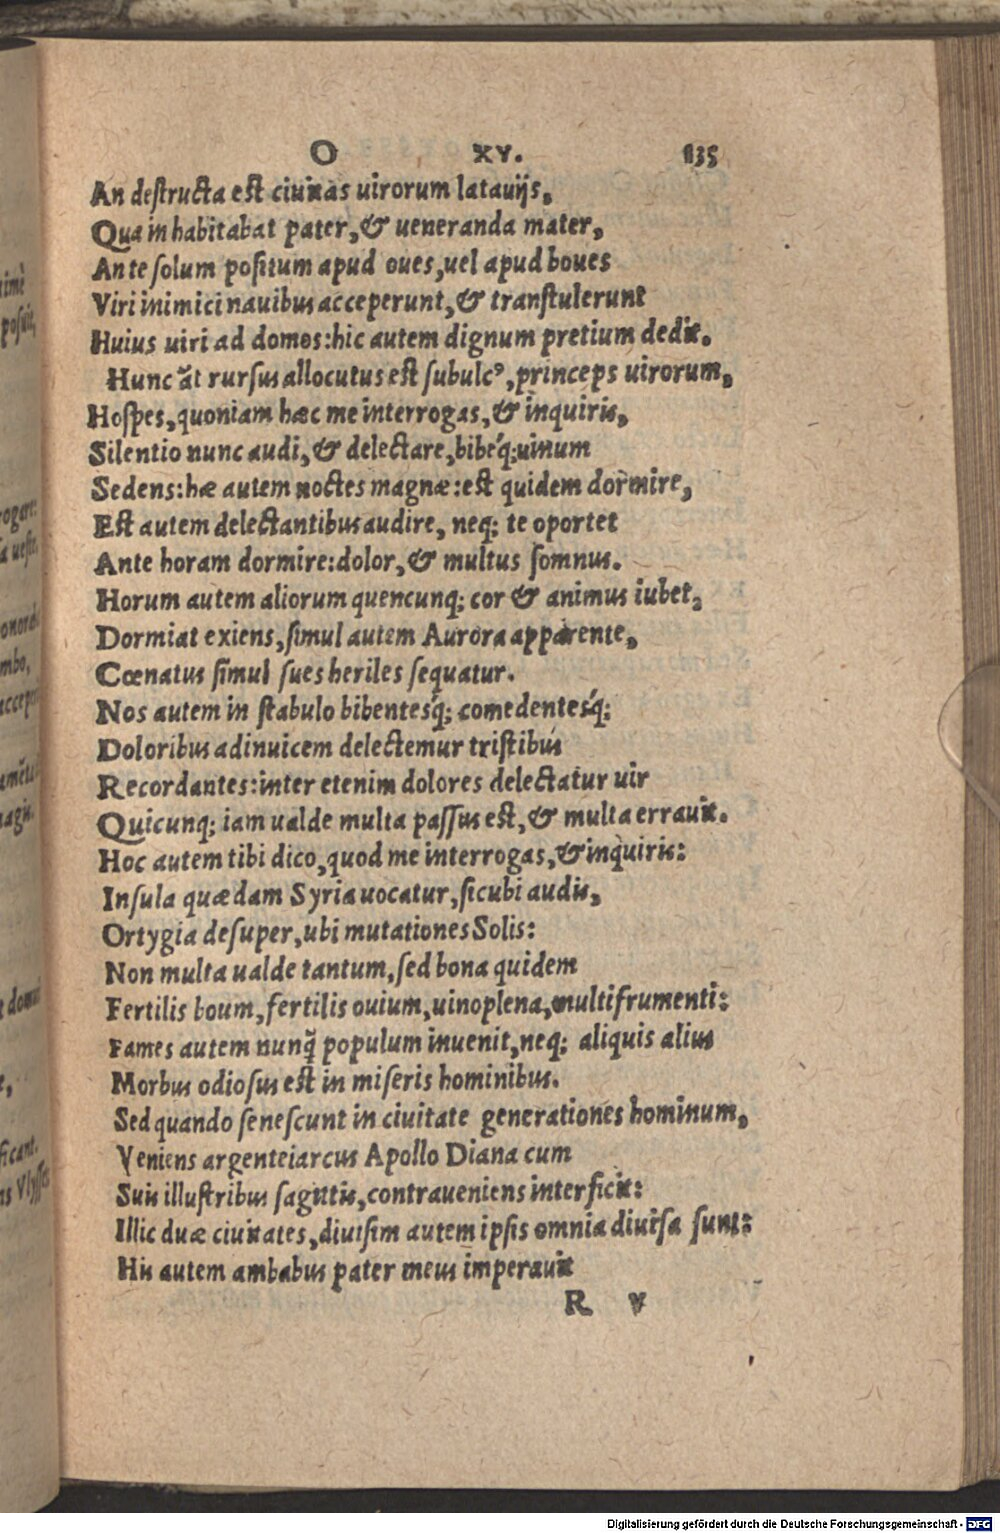 O XV. 135
An destructa est ciuitas uirorum latauijs,
Qua inhabitabat pater, & ueneranda mater,
Ante solum positum apud oues, uel apud boues
Viri inimici nauibus acceperunt, & transtulerunt
Huius uiri ad domos: hic autem dignum pretium dedit.
Hunc āt rursus allocutus est subulcꝰ, princeps uirorum,
Hospes, quoniam hæc me interrogas, & inquiris,
Silentio nunc audi, & delectare, bibeq́; uinum
Sedens: hæ autem noctes magnæ: est quidem dormire,
Est autem delectantibus audire, neq; te oportet
Ante horam dormire: dolor, & multus somnus.
Horum autem aliorum quencunq; cor & animus iubet,
Dormiat exiens, simul autem Aurora apparente,
Cœnatus simul sues heriles sequatur.
Nos autem in stabulo bibentesq́; comedentesq́;
Doloribus adinuicem delectemur tristibus
Recordantes: inter etenim dolores delectatur uir
Quicunq; iam ualde multa passus est, & multa errauit.
Hoc autem tibi dico, quod me interrogas, & inquiris:
Insula quædam Syria uocatur, sicubi audis,
Ortygia desuper, ubi mutationes Solis:
Non multa ualde tantum, sed bona quidem
Fertilis boum, fertilis ouium, uinoplena, multifrumenti:
Fames autem nunq̃ populum inuenit, neq; aliquis alius
Morbus odiosus est in miseris hominibus.
Sed quando senescunt in ciuitate generationes hominum,
Veniens argenteiarcus Apollo Diana cum
Suis illustribus sagittis, contraueniens interficit:
Illic duæ ciuitates, diuisim autem ipsis omnia diuisa sunt:
His autem ambabus pater meus imperauit
R v
Digitalisierung gefördert durch die Deutsche Forschungsgemeinschaft - DFG